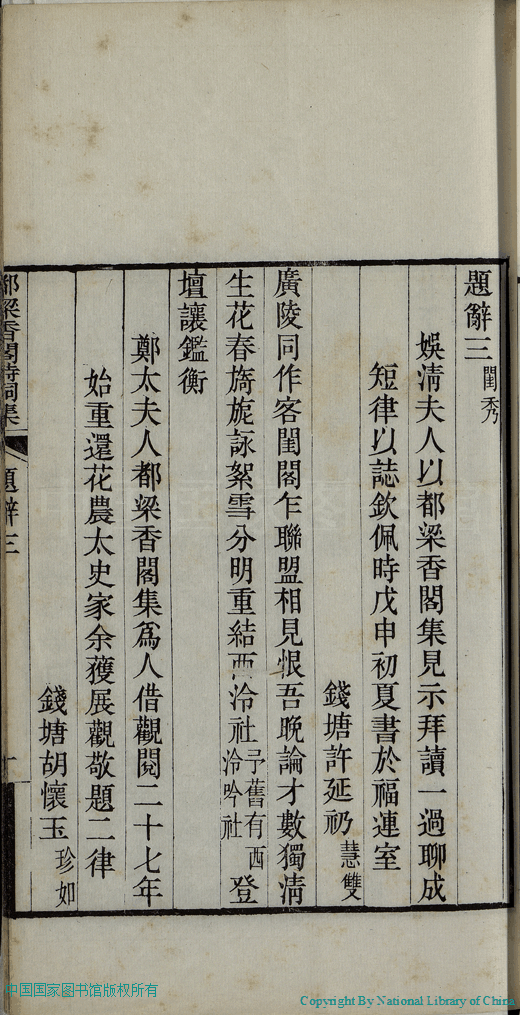 題辭三 閨秀
娛淸夫人以都梁香閣集見示拜讀一過聊成
短律以誌欽佩時戊申初夏書於福連室
錢塘許延礽 慧雙
廣陵同作客閨閣乍聯盟相見恨吾晚論才數獨淸
生花春旖旎詠絮雪分明重結西泠社 予舊有西泠吟社 登
壇讓鑑衡
鄭太夫人都梁香閣集爲人借觀閱二十七年
始重還花農太史家余獲展觀敬題二律
錢塘胡懷玉 珍如
都梁香閣詩詞集 題辭三
中国国家图书馆版权所有
Copyright By National Library of China